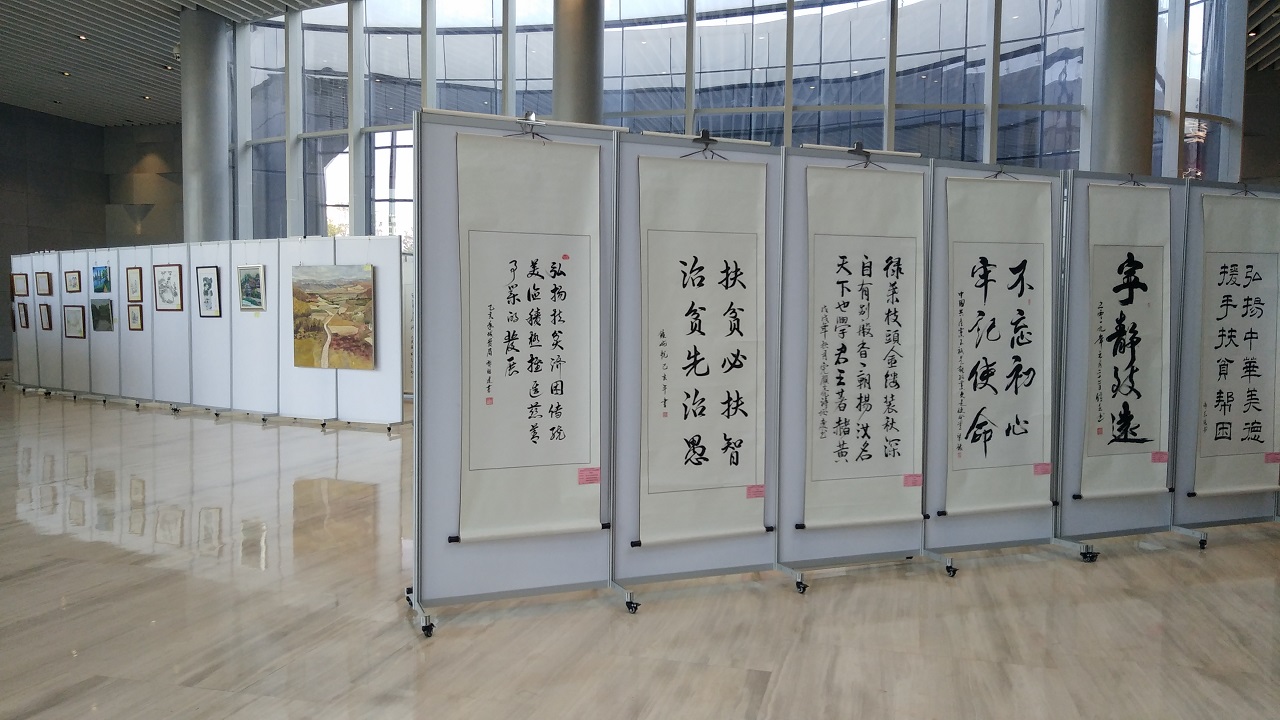 弘扬扶贫济困传统
美德积极推进慈善
事业的发展
扶贫必扶智
治贫先治愚
己亥年书
绿葉枝頭金缕装秋深
自有别般香一朝扬汝名
天下也学君王著赭黄
不忘初心
牢记使命
宁静致远
弘揚中華美德
援手扶貧帮困